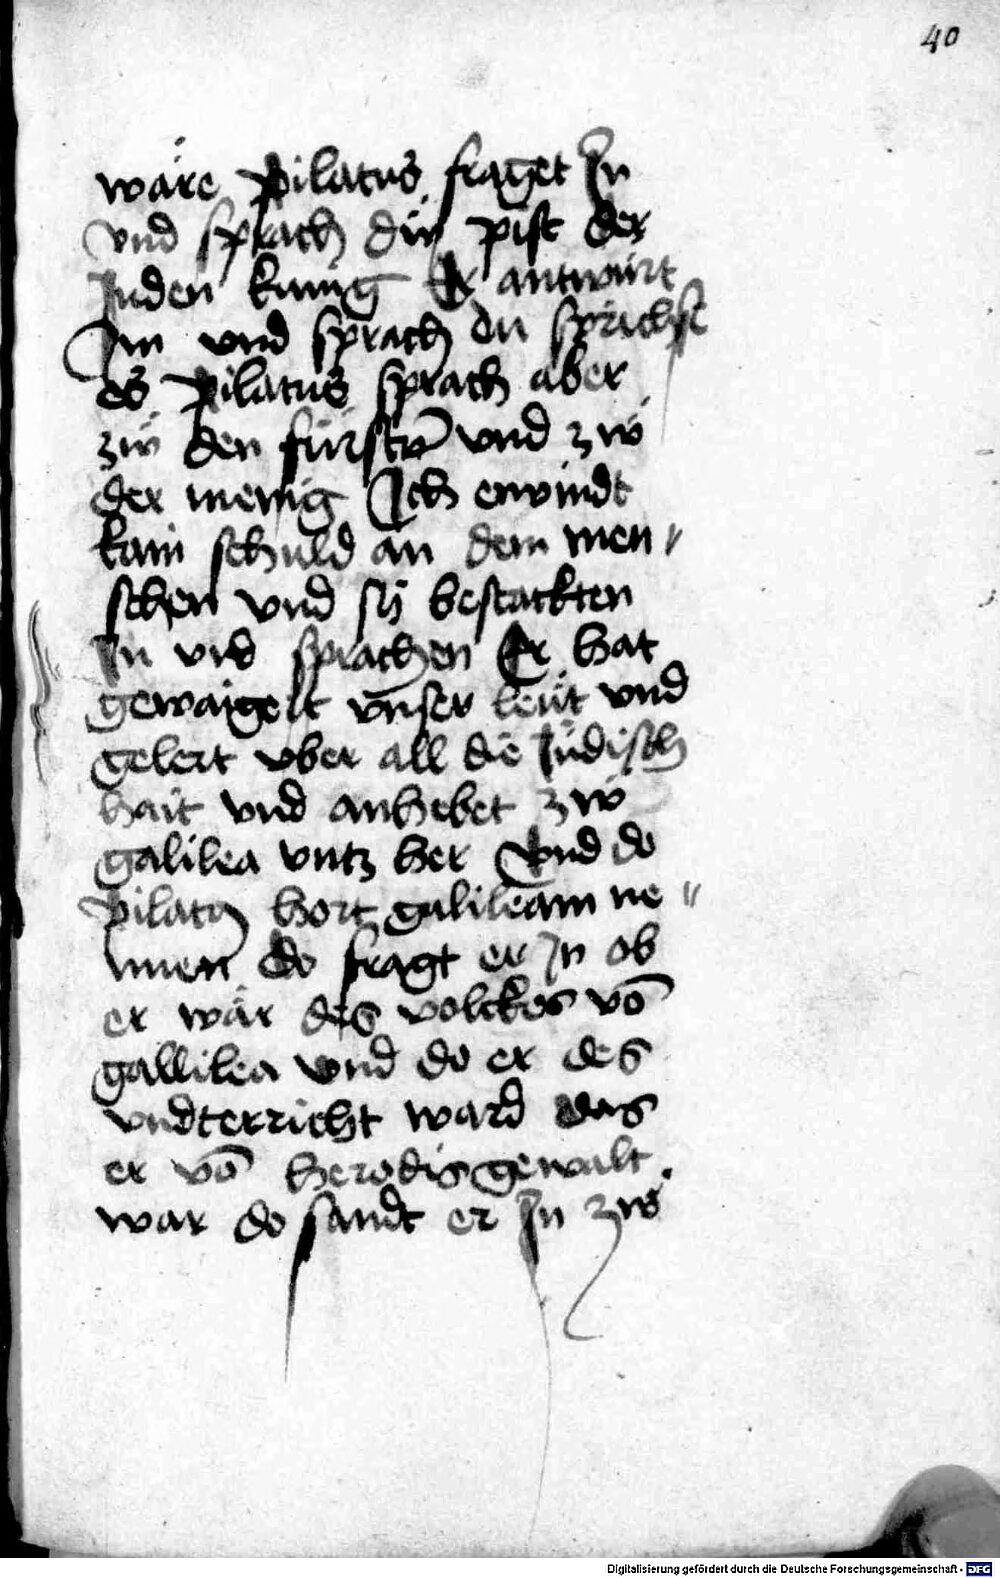 40
wäre Pilatus fraget In
vnd sprach du pist der
Juden kunig Er antwurt
Im vnd sprach du sprichst
es Pilatus sprach aber
zw den fürstn̄ vnd zw
der menig Ich erwindt
kain schuld an dem men〃
schen vnd sy bestackten
In vnd sprachen Er hat
gewaigelt vnser leüt vnd
gelert vber all die Judisch
hait vnd anhebet zw
galilea vntz her Vnd do
Pilatꝰ hort galileam ne〃
nnen do fragt er In ob
er wär des volckes vō
gallilea vnd do er des
vndterricht ward das
er vō herodis gewalt
war do sandt er In zw
Digitalisierung gefördert durch die Deutsche Forschungsgemeinschaft - DFG